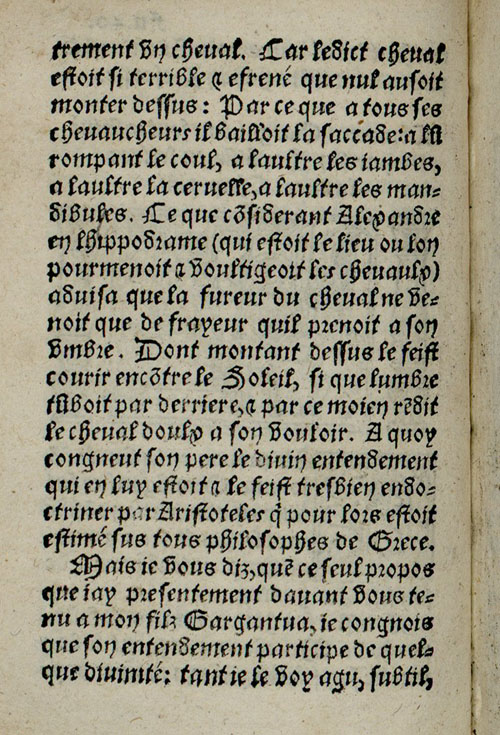 trement vn cheual. Car ledict cheual
estoit si terrible & efrené que nul ausoit
monter dessus: Par ce que a tous ses
cheuaucheurs il bailloit la saccade: a lũ
rompant le coul, a laultre les iambes,
a laultre la ceruelle, a laultre les man-
dibules. Ce que cõsiderant Alexandre
en lhippodrame (qui estoit le lieu ou lon
pourmenoit & voultigeoit les cheuaulx)
aduisa que la fureur du cheual ne ve-
noit que de frayeur quil prenoit a son
vmbre. Dont montant dessus le feist
courir encõtre le Soleil, si que lumbre
tũboit par derriere, & par ce moien rẽdit
le cheual doulx a son vouloir. A quoy
congneut son pere le diuin entendement
qui en luy estoit & le feist tresbien endo-
ctriner par Aristoteles q̃ pour lors estoit
estimé sus tous philosophes de Grece.
Mais ie vous diz, quẽ ce seul propos
que iay presentement dauant vous te-
nu a mon filz Gargantua, ie congnois
que son entendement participe de quel-
que diuinité: tant ie le voy agu, subtil,